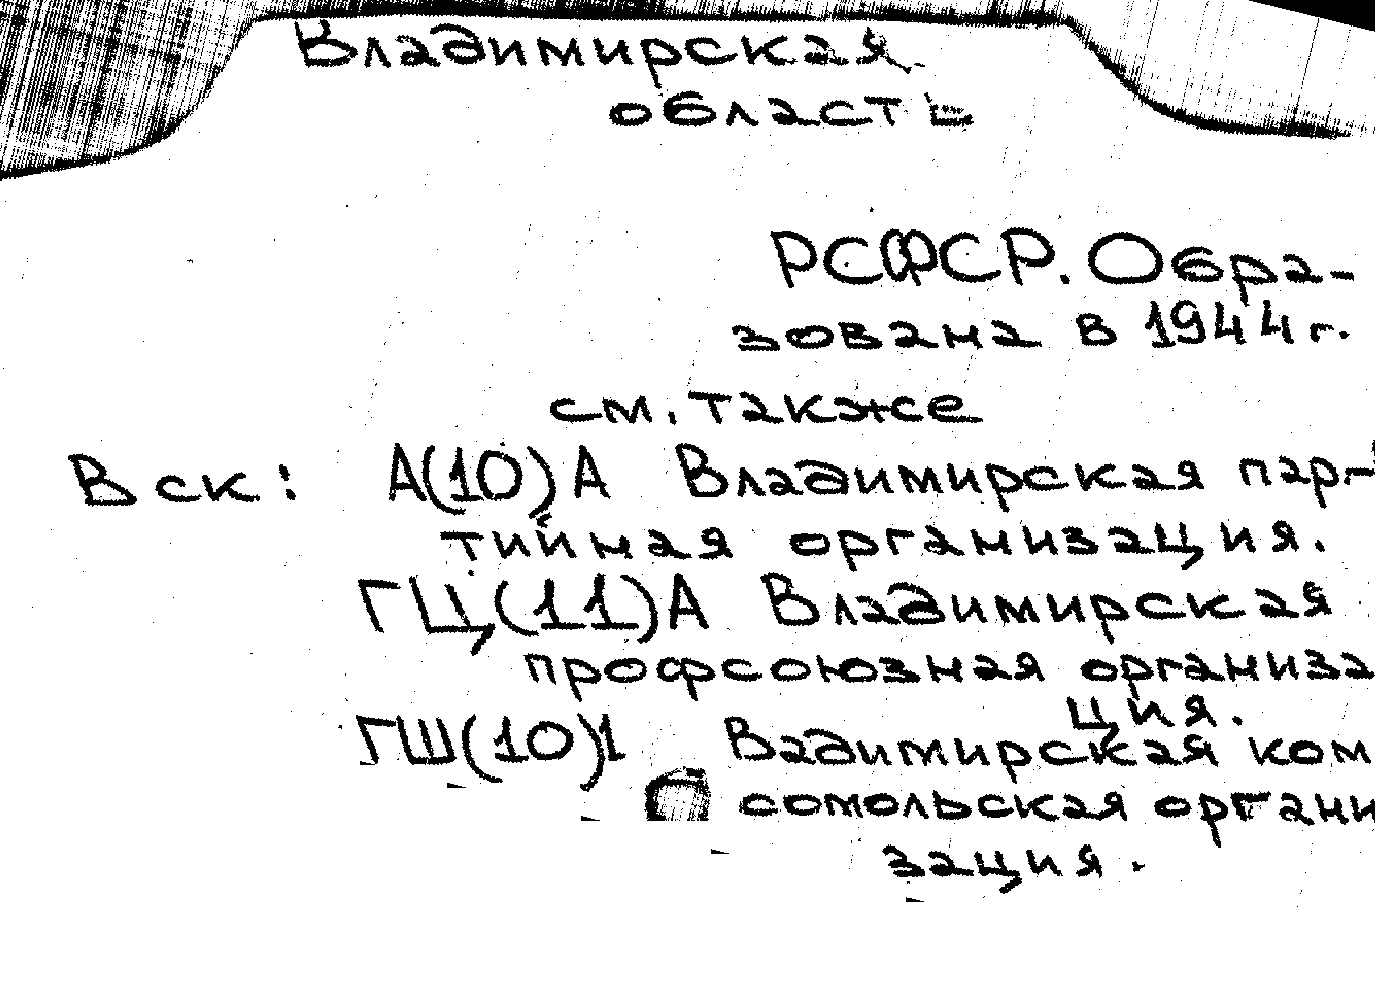 Владимирская
область
РСФСР. Обра-
зована в 1944 г.
см. также
В ск: А(10)А Владимирская пар-
тийная организация.
ГЦ(11)А Владимирская
профсоюзная организа
ция.
ГШ(10)1 Вадимирская ком
сомольская органи
зация.